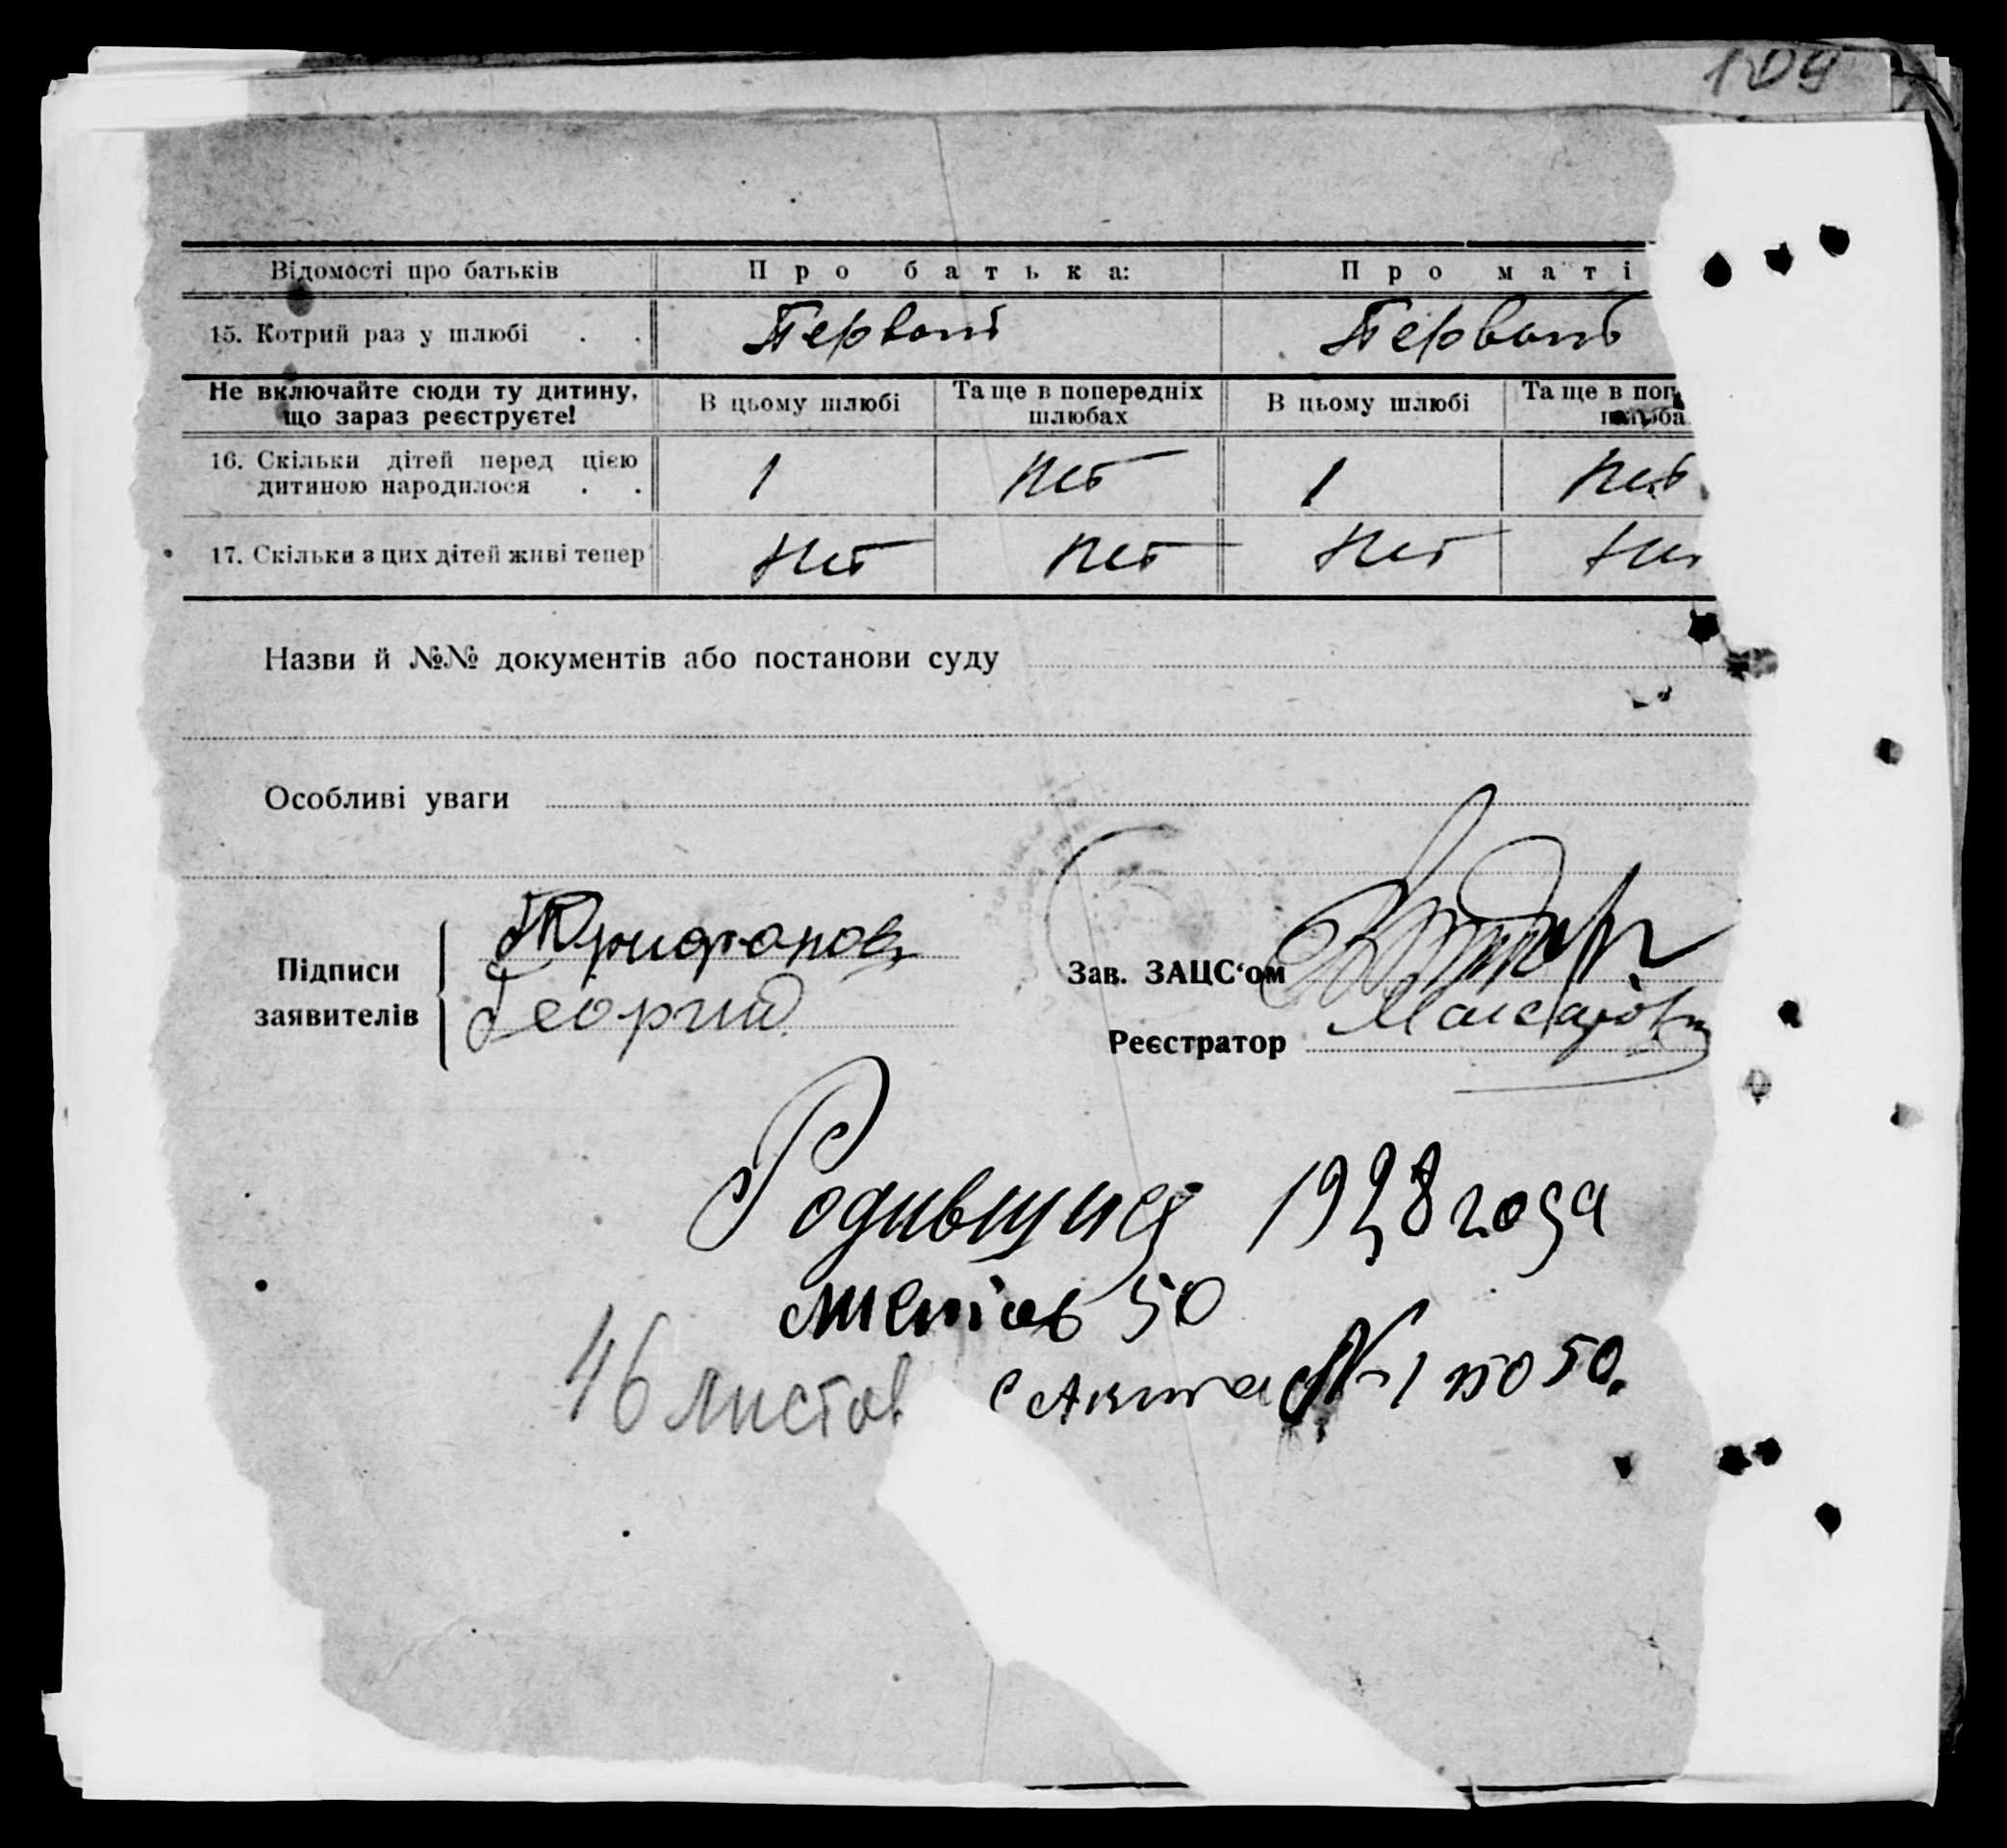 109
Відомості про батьків Про батька: Про маті
15. Котрий раз у шлюбі . . Первой Первой
Не включайте сюди ту дитину, що зараз реєструєте! В цьому шлюбі Та ще в попередніх шлюбах В цьому шлюбі Та ще в поп
16. Скільки дітей перед цією дитиною народилося . . 1 Нет 1 Нет
17. Скільки з цих дітей живі тепер Нет Нет Нет Не
Назви й №№ документів або постанови суду
Особливі уваги
Підписи заявителів
Трифонов
Георгий
Зав. ЗАЦС‘ом
Реєстратор
Родивщиеся 1928 года
листов 50
46 листов с Акта № 1 по 50.